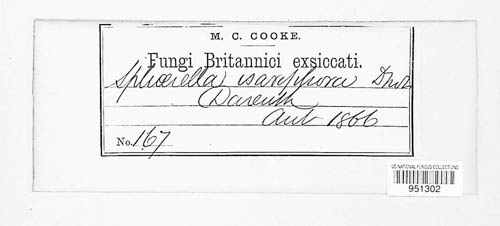 M. C. COOKE.
Fungi Britannici exsiccati.
Sphærella isariphora
Darenth
Aut 1866
No. 167
US NATIONAL FUNGUS COLLECTIONS
951302